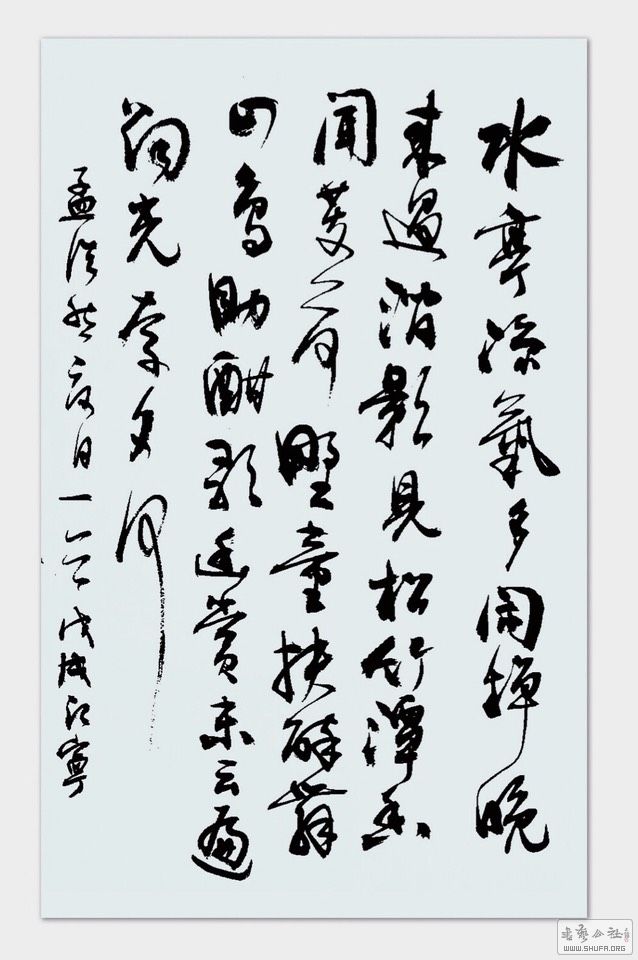 水亭凉氣多閑棹晚
来過澗影見松竹潭香
聞芰荷野童扶醉舞
山鳥助酣歌幽賞未云遍
烟光奈夕何
孟浩然夏日一戊戌江寧
书艺公社
WWW.SHUFA.ORG